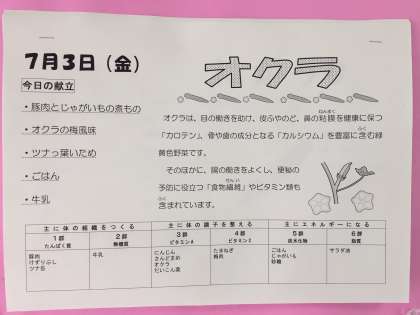 7月3日（金）
オクラ
今日の献立
・豚肉とじゃがいもの煮もの
・オクラの梅風味
・ツナっ葉いため
・ごはん
・牛乳
オクラは、目の働きを助け、皮ふやのど、鼻の粘膜を健康に保つ
「カロテン」、骨や歯の成分となる「カルシウム」を豊富に含む緑
黄色野菜です。
そのほかに、腸の働きをよくし、便秘の
予防に役立つ「食物繊維」やビタミン類も
含まれています。
主に体の組織をつくる 主に体の調子を整える 主にエネルギーになる
1群 2群 3群 4群 5群 6群
たんぱく質 無機質 ビタミンA ビタミンC 炭水化物 脂質
豚肉 牛乳 にんじん たまねぎ ごはん サラダ油
けずりぶし さんどまめ 梅肉 じゃがいも
ツナ缶 オクラ 砂糖
だいこん葉